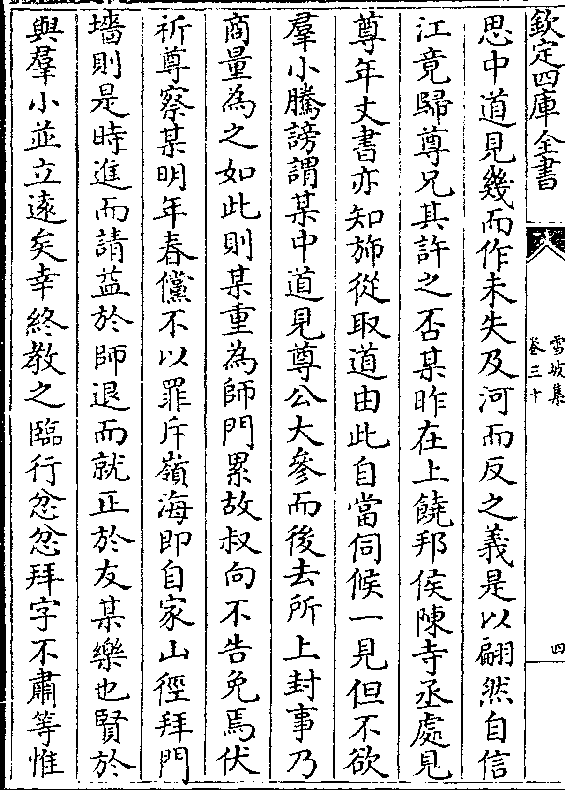 欽定四庫全書
雪坡集
卷三十
四
思中道見幾而作未失及河而反之義是以翩然自信
江竟歸尊兄其許之否某昨在上饒邦侯陳寺丞處見
尊年丈書亦知斾從取道由此自當伺候一見但不欲
羣小騰謗謂某中道見尊公大參而後去所上封事乃
商量為之如此則某重為師門累故叔向不告免焉伏
祈尊察某明年春儻不以罪斥嶺海即自家山徑拜門
墻則是時進而請益於師退而就正於友某樂也賢於
與羣小並立遠矣幸終教之臨行怱怱拜字不肅等惟